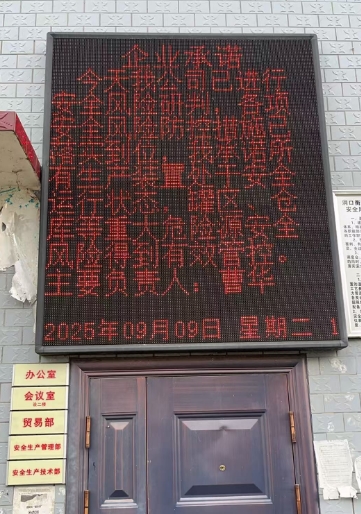 企业承诺
今天我公司已进行
安全风险研判，各项
安全风险防控措施已
落实到位，我承诺所
有生产装置处于安全
运行状态，罐区、仓
库等重大危险源安全
风险得到有效管控。
主要负责人：曹华
2025年09月09日 星期二 1
办公室
会议室
贸易部
安全生产管理部
安全生产技术部